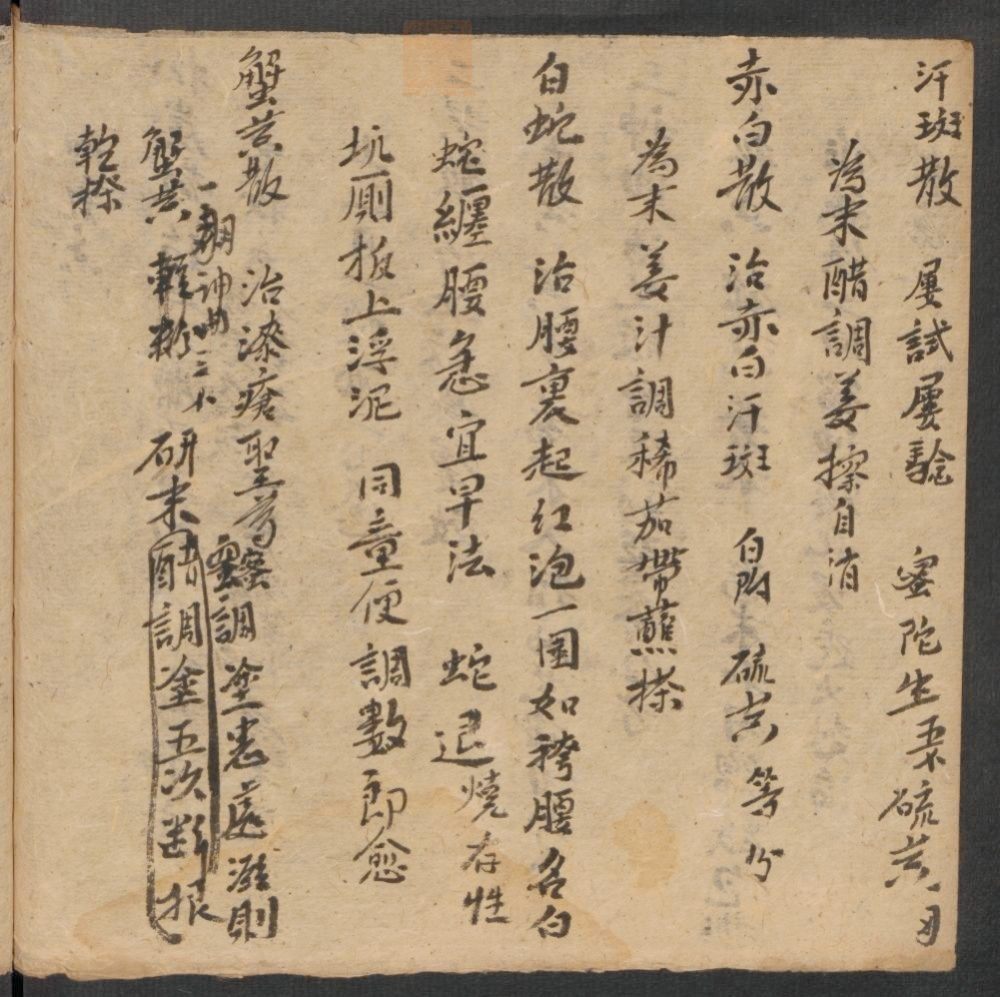 汗斑散 屢試屢驗 蜜陀生 硫黃
為末醋調姜擦自消
赤白散 治赤白汗斑 白附 硫黃 等分
為末姜汁調稀茄帶蘸搽
白蛇散 治腰裏起紅泡一圍如袴腰名白
蛇纏腰急宜早法 蛇退燒存性
坑厠板上浮泥 同童便調敷即愈
蟹黃散 治漆瘡聖 蜜調塗患處 則
蟹黃 研末醋調塗五次斷根
乾搽